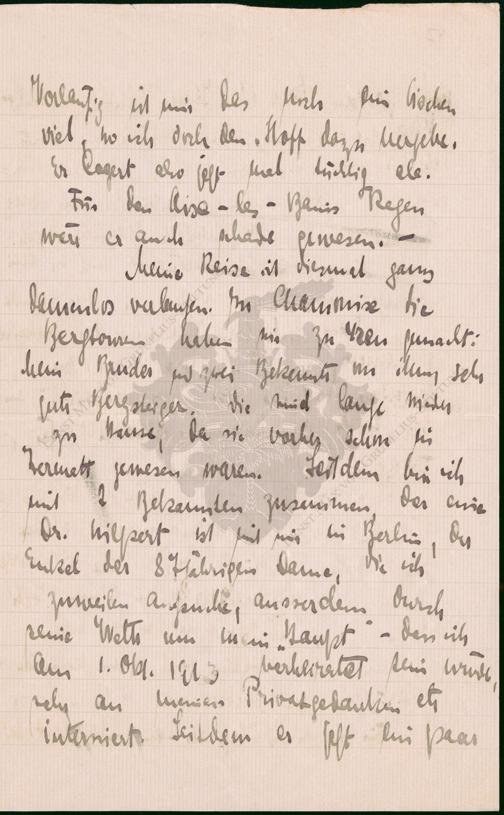 Vorläufig ist mir das noch ein bischen
viel, wo ich doch den Stoff dazu hergebe.
Er lagert also jetzt mal tüchtig ab.
Für den Aix-les-Bains Regen
wär er auch schade gewesen. –
Meine Reise ist diesmal ganz
damenlos verlaufen. In Chamonix die
Bergtouren haben wir zu gemacht:
Mein Bruder und zwei Bekannte von ihm, sehr
gute Bergsteiger. Die sind lange wieder
zu Hause, da sie vorher schon in
Zermatt gewesen waren. Seitdem bin ich
mit 2 Bekannten zusammen, der eine
Dr. Hilpert ist mit mir in Berlin, der
Enkel der 87jährigen Dame, die ich
zuweilen aufsuche, ausserdem durch
seine Wette um mein "Haupt" – dass ich
am 1. Okt. 1913 verheiratet sein würde,
sehr an meinen Privatgedanken etc
interessiert. Seitdem er jetzt ein paar